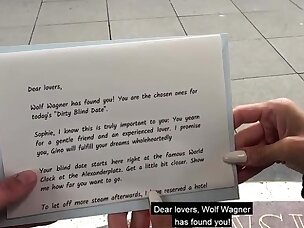 Dear lovers,
Wolf Wagner has found you! You are the chosen ones for
today's "Dirty Blind Date".
Sophie, I know this is truly important to you: You yearn
for a gentle friend and an experienced lover. I promise
you, Gino will fulfill your dreams wholeheartedly
Your blind date starts here right at the famous World
Clock at the Alexanderplatz. Get a little bit closer. Show
me how far you want to go.
To let off more steam afterwards, I have reserved a hotel
Dear lovers, Wolf Wagner
has found you!